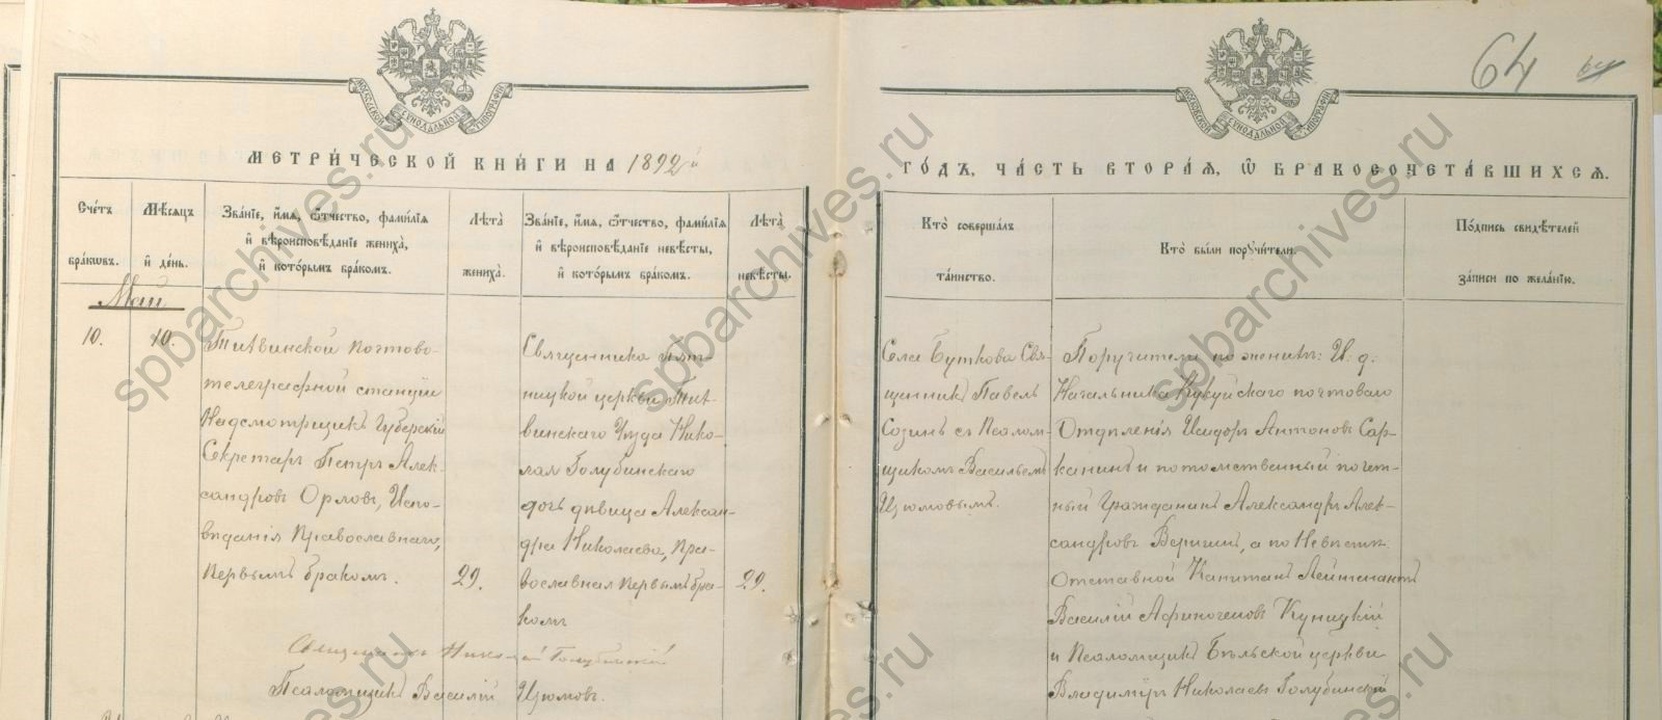 64
МЕТРИ́ЧЕСКОЙ КНИ́ГИ НА 1892 й
ГО́ДЪ, ЧА́СТЬ ВТОРА́Я, Ѽ БРАКОСОЧЕТА́ВШИХСЯ.
Сче́тъ бра́ковъ.
Мѣ́сяцъ и҆ де́нь.
Зва́нїе, и҆́мя, ѻ҆́тчество, фами́лїя
и҆ вѣроисповѣ́данїе жениха̀,
и҆ кото́рымъ бра́комъ.
Лѣта̀ жениха̀.
Зва́нїе, и҆́мя, ѻ҆́тчество, фами́лїя
и҆ вѣроисповѣ́данїе невѣ́сты,
и҆ кото́рымъ бра́комъ.
Лѣта̀ невѣ́сты.
Кто̀ соверша́лъ
та́инство.
Кто̀ бы́ли поручи́тели.
По́дпись свидѣ́телей
за́писи по жела́нїю.
Май
10.
10.
Тихвинской почтово-
телеграфной станціи
Надсмотрщикъ Губернскій
Секретарь Петръ Алек-
сандровъ Орловъ, Испо-
вѣданія Православнаго,
первымъ бракомъ.
29.
Священника Пят-
ницкой церкви Тих-
винскаго Уѣзда Нико-
лая Голубинскаго
дочь дѣвица Алексан-
дра Николаева, Пра-
вославная первымъ бра-
комъ
29.
Села Буткова Свя-
щенникъ Павелъ
Созинъ съ Псалом-
щикомъ Васильемъ
Изюмовымъ.
Поручители по женихѣ: И. д.
Начальника Кукуйскаго почтоваго
Отдѣленія Исидоръ Антоновъ Сар-
канинъ и потомственный почет-
ный Гражданинъ Александръ Алек-
сандровъ Веригинъ, а по Невѣстѣ:
Отставной Капитанъ Лейтенантъ
Василій Афиногеновъ Куницкій
и Псаломщикъ Бѣльской церкви
Владиміръ Николаевъ Голубинскій
Священникъ Николай Голубинскій
Псаломщикъ Василій Изюмовъ.
spbarchives.ru
spbarchives.ru
spbarchives.ru